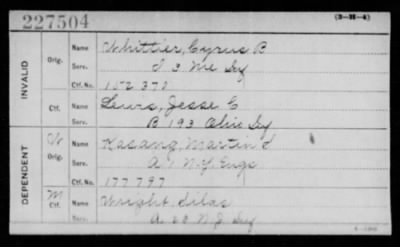 227504 (3-H-4)
INVALID
Orig. Name Whittier, Cyrus B
Serv. I 3 Me Inf
Ctf. No. 152 370
Ctf. Name Lewis, Jesse E
Serv. B 193 Ohio Inf
DEPENDENT
W Orig. Name Kasang, Martin L
Serv. A 1 N.Y. Engs
Ctf. No. 177797
M Ctf. Name Wright, Silas
Serv. A N.J. Inf